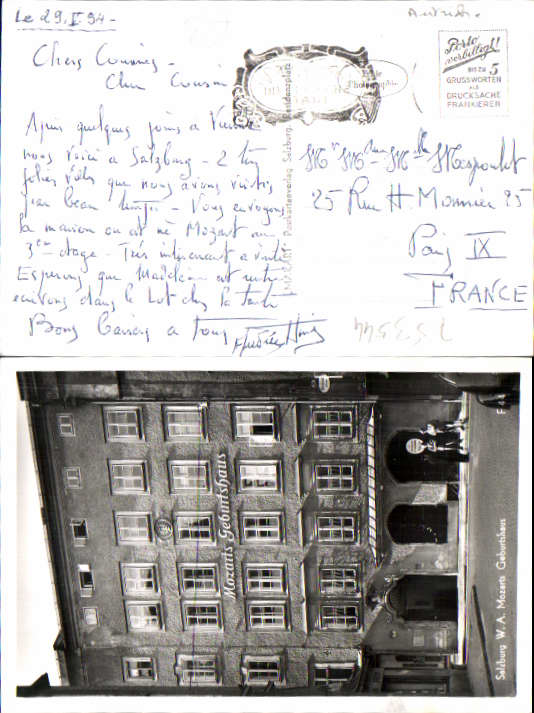 Le 29. V 54 -
Autriche.
Chers Cousines -
Cher Cousin
Après quelques jours à Vienne
nous voici à Salzburg - 2 très
jolies villes que nous avons visités
par beau temps - Vous envoyons
la maison où est né Mozart au
3eme étage - Très intéressant à visiter
Espérons que Madeleine est
dans le Lot chez la tante
Bons baisers à tous
Porto
verbilligt!
BIS ZU 5
GRUSSWORTEN
ALS
DRUCKSACHE
FRANKIEREN
Photographie
Postkartenverlag Salzburg, Residenzplatz
Mr Mme Mlle Maspoulet
25 Rue H. Monnier 25
Paris IX
FRANCE
Mozarts Geburtshaus
Salzburg W. A. Mozarts Geburtshaus